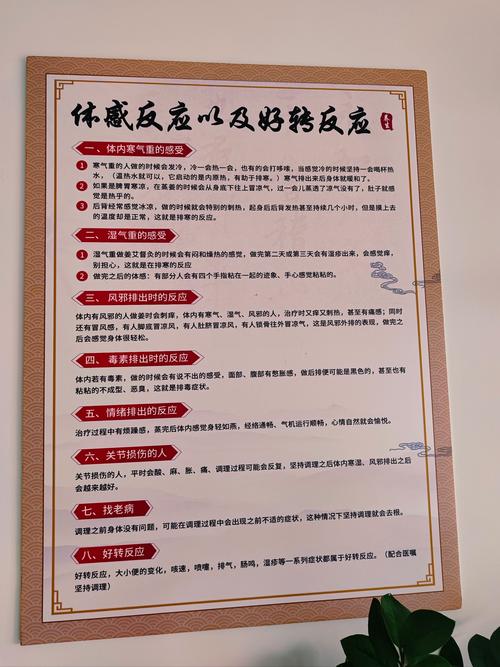 体感反应以及好转反应
养生
一、体内寒气重的感受
1 寒气重的人做的时候会发冷，冷一会热一会，也有的会打哆嗦，当感觉冷的时候坚持一会喝杯热
水，（温热水就可以，它启动的是内原热，有助于排寒。）寒气排出来后身体就暖和了。
2 如果是脾胃寒凉，在蒸姜的时候会从身底下往上冒凉气，过一会儿蒸透了凉气没有了，肚子就感
觉是热乎的。
3 后背经常感觉冰凉，做的时候就会特别的刺热，起身后后背发热甚至持续几个小时，但是摸上去
的温度却是正常，这就是排寒的反应。
二、湿气重的感受
1 湿气重做姜艾督灸的时候会有闷和燥热的感觉，做完第二天或第三天会有湿疹出来，会感觉痒，
别担心，这就是在排寒的反应
2 做完之后的体感：有部分人会有四个手指粘在一起的迹象、手心感觉粘粘的。
三、风邪排出时的反应
体内有风邪的人做姜时会刺痒，体内有寒气、湿气、风邪的人，治疗时又痒又刺热，甚至有痛感；同时
还有冒风感，有人脚底冒凉风，有人肚脐冒凉风，有人锁骨往外冒凉气，这是风邪外排的表现，做完之
后会感觉身体很轻松。
四、毒素排出时的反应
体内若有毒素，做的时候会有说不出的感觉，面部、腹部有憋胀感，做后排便可能是黑色的，甚至也有
粘粘的不成型、恶臭，这就是排毒症状。
五、情绪排出的反应
治疗过程中有烦躁感，蒸完后体内感觉身轻如燕，经络通畅、气机运行顺畅，心情自然就会愉悦。
六、关节损伤的人
关节损伤的人，平时会酸、麻、胀、痛、调理过程可能会反复，坚持调理之后体内寒湿、风邪排出之后
会越来越好。
七、找老病
调理之前身体没有问题，可能在调理过程中会出现之前不适的症状，这种情况下坚持调理就会去根。
八、好转反应
好转反应，大小便的变化，咳速，喷嚏，排气，肠鸣，湿疹等一系列症状都属于好转反应。（配合医嘱
坚持调理）